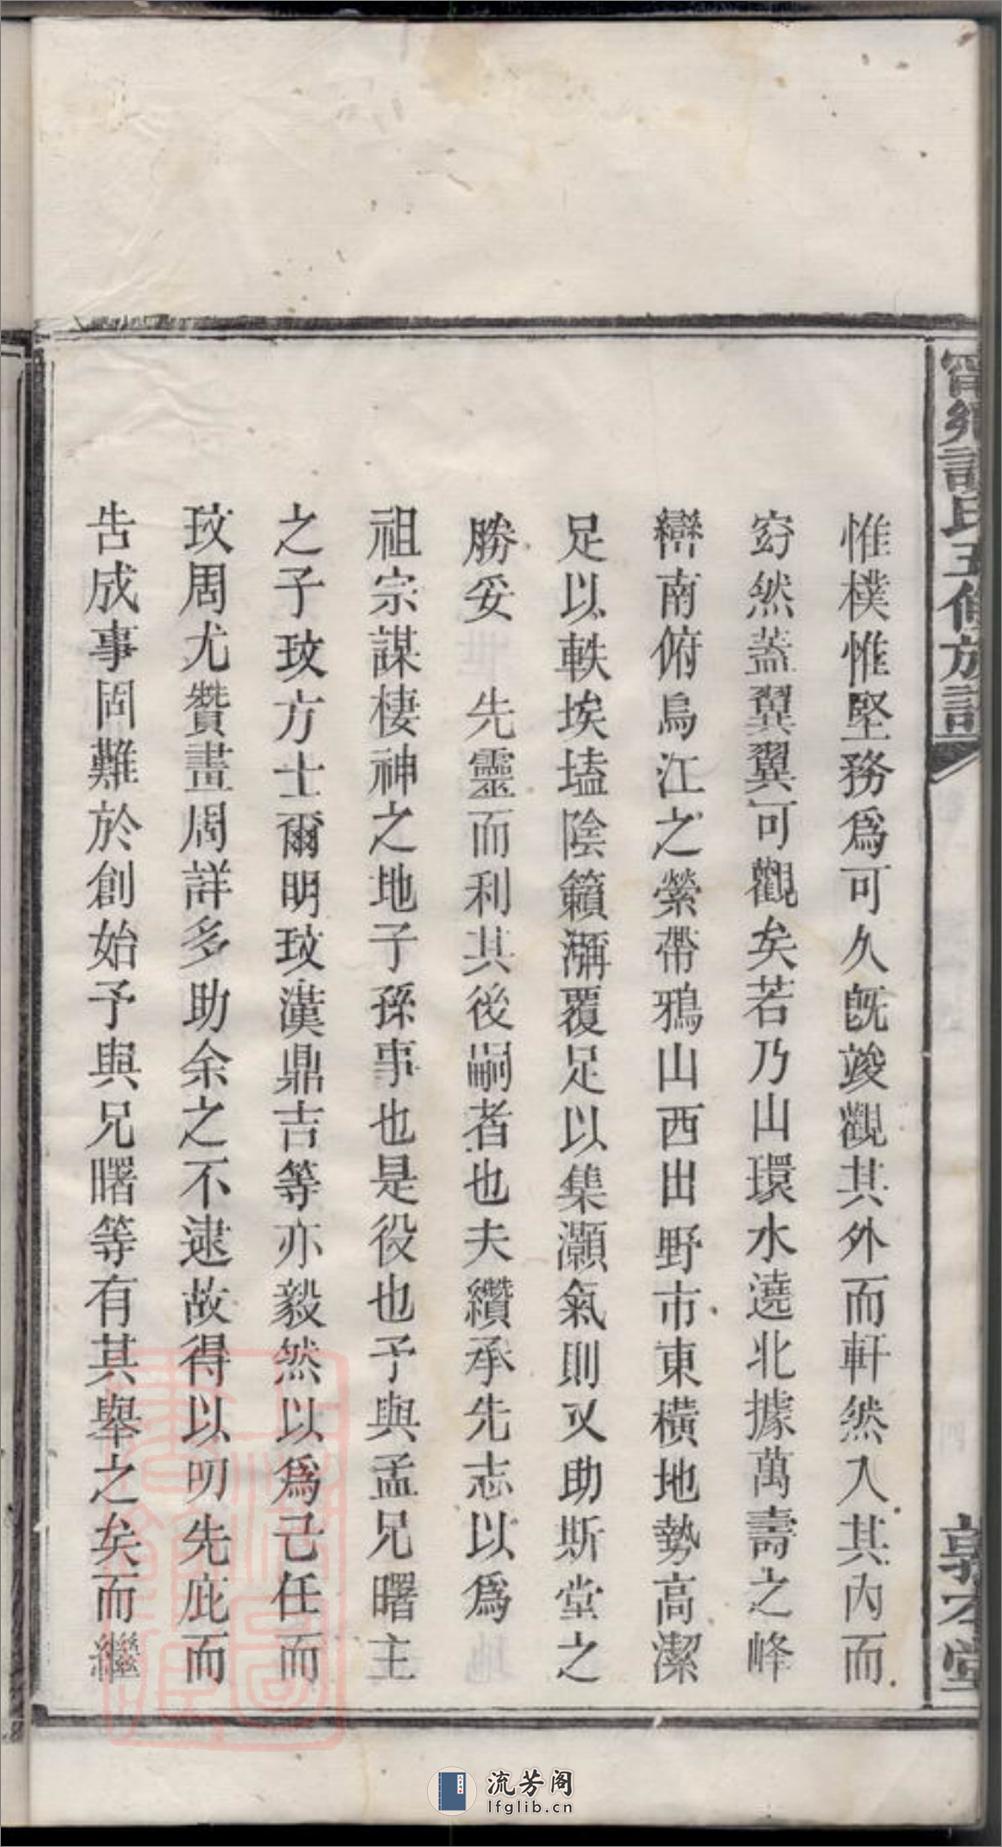 惟樸惟堅務爲可久旣竣觀其外而軒然入其內而
窈然蓋翼翼可觀矣若乃山環水澆北據萬壽之峰
巒南俯烏江之縈帶鴉山西出野市東橫地勢高潔
足以軼埃壒陰籟瀰覆足以集灝氣則又助斯堂之
勝妥　先靈而利其後嗣者也夫纘承先志以爲
祖宗謀棲神之地子孫事也是役也予與孟兄曙主
之子玟方士爾明玟漢鼎吉等亦毅然以爲己任而
玟周尤贊畫周詳多助余之不逮故得以叨先庇而
告成事固難於創始予與兄曙等有其舉之矣而繼
氏五修族
敦本堂
流芳阁
lfglib.cn